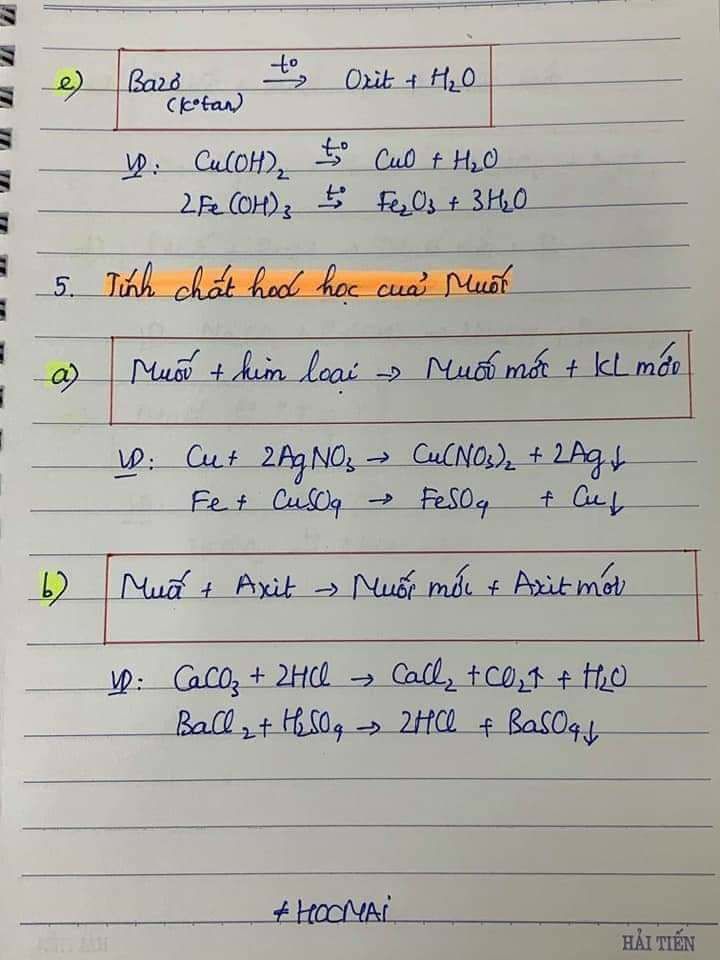 e) Bazơ t° → Oxit + H₂O
(k° tan)
VD: Cu(OH)₂ t° → CuO + H₂O
2Fe(OH)₃ t° → Fe₂O₃ + 3H₂O
5. Tính chất hoá học của Muối
a) Muối + kim loại → Muối mới + KL mới
VD: Cu + 2AgNO₃ → Cu(NO₃)₂ + 2Ag↓
Fe + CuSO₄ → FeSO₄ + Cu↓
b) Muối + Axit → Muối mới + Axit mới
VD: CaCO₃ + 2HCl → CaCl₂ + CO₂↑ + H₂O
BaCl₂ + H₂SO₄ → 2HCl + BaSO₄↓
≠HOCMAI
HẢI TIẾN